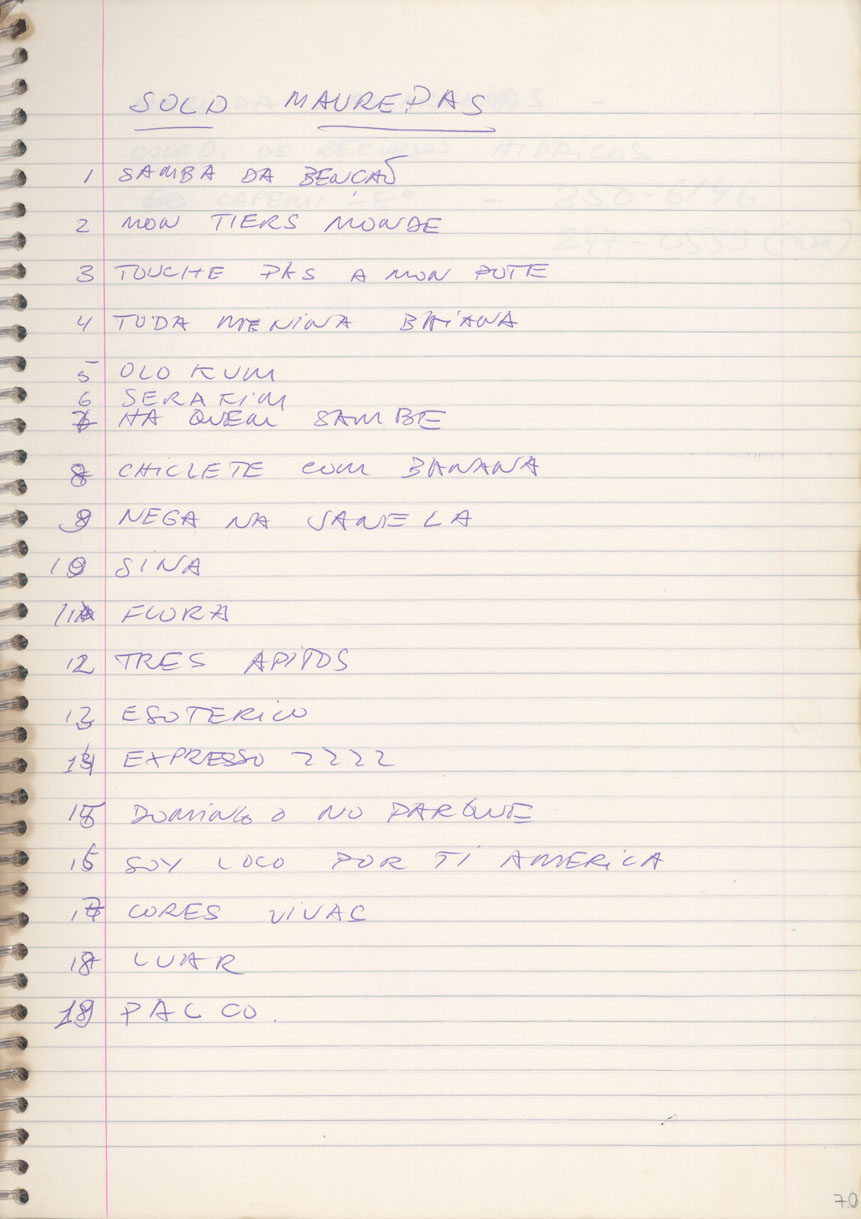 SOLO MAUREPAS
1 SAMBA DA BENÇÃO
2 MON TIERS MONDE
3 TOUCHE PAS A MON POTE
4 TODA MENINA BAIANA
5 OLO KUM
6 SERAFIM
7 HA QUEM SAMBE
8 CHICLETE COM BANANA
9 NEGA NA JANELA
10 SINA
11 FLORA
12 TRES APITOS
13 ESOTERICO
14 EXPRESSO 2222
15 DOMINGO NO PARQUE
16 SOY LOCO POR TI AMERICA
17 CORES VIVAS
18 LUAR
19 PALCO.
COORD. DE RECURSOS
CAPEMI 350-6146
247-0559 (casa)
70